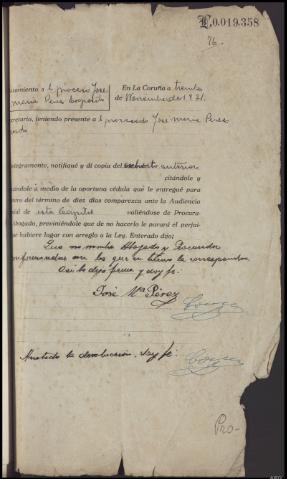 L0.019.358
76.
uimiento a el procesado José
María Pérez
En La Coruña a treinta
de Noviembre de 1921.
cretario, teniendo presente a el procesado José María Pérez
ntegramente, notifiqué y di copia del auto anterior
citándole y
zándole a medio de la oportuna cédula que le entregué para
tro del término de diez días comparezca ante la Audiencia
ial de esta Capital valiéndose de Procura-
Abogado, previniéndole que de no hacerlo le parará el perjui-
ue hubiere lugar con arreglo a la Ley. Enterado dijo:
Que no nombra Abogado y Procurador
conformándose con los que en turno le correspondan
Así lo dijo firma y doy fe.
José Mª Pérez
Anotada la devolución, doy fe.
Pro-